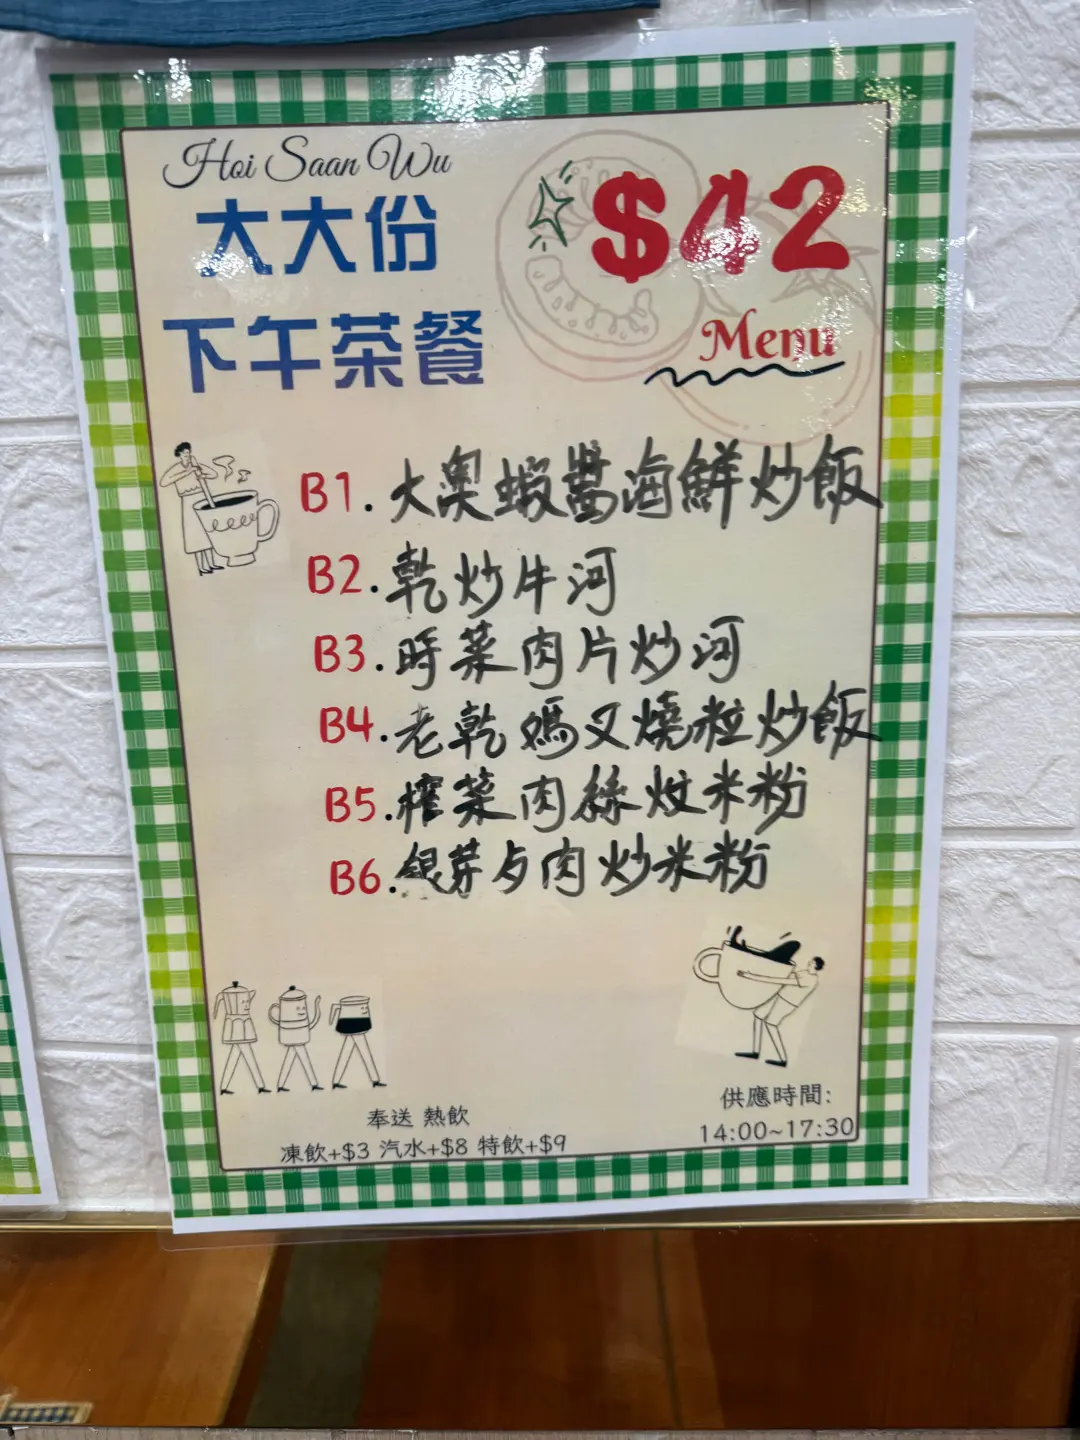 Hoi Saan Wu
大大份
下午茶餐
$42
Menu
B1. 大奧蝦醬海鮮炒飯
B2. 乾炒牛河
B3. 時菜肉片炒河
B4. 老乾媽叉燒粒炒飯
B5. 榨菜肉絲炆米粉
B6. 銀芽肉炒米粉
奉送 熱飲
凍飲+$3 汽水+$8 特飲+$9
供應時間:
14:00~17:30